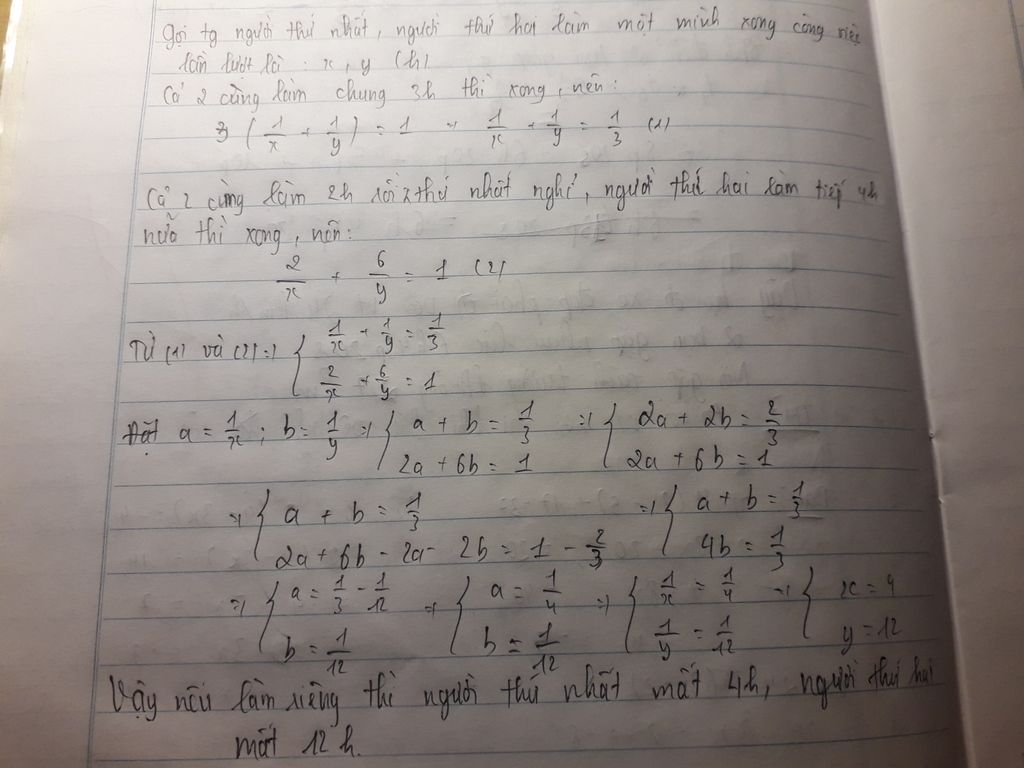 Gọi tg người thứ nhất, người thứ hai làm một mình xong công việc
lần lượt là : x, y (h)
Cả 2 cùng làm chung 3h thì xong, nên:
3 (1/x + 1/y) = 1 => 1/x + 1/y = 1/3 (1)
Cả 2 cùng làm 2h rồi thứ nhất nghỉ, người thứ hai làm tiếp 4h
nữa thì xong, nên:
2/x + 6/y = 1 (2)
Từ (1) và (2) => { 1/x + 1/y = 1/3
2/x + 6/y = 1
Đặt a = 1/x ; b = 1/y => { a + b = 1/3 => { 2a + 2b = 2/3
2a + 6b = 1 2a + 6b = 1
=> { a + b = 1/3 => { a + b = 1/3
2a + 6b - 2a - 2b = 1 - 2/3 4b = 1/3
=> { a = 1/3 - 1/12 => { a = 1/4 => { 1/x = 1/4 => { x = 4
b = 1/12 b = 1/12 1/y = 1/12 y = 12
Vậy nếu làm riêng thì người thứ nhất mất 4h, người thứ hai
mất 12 h.